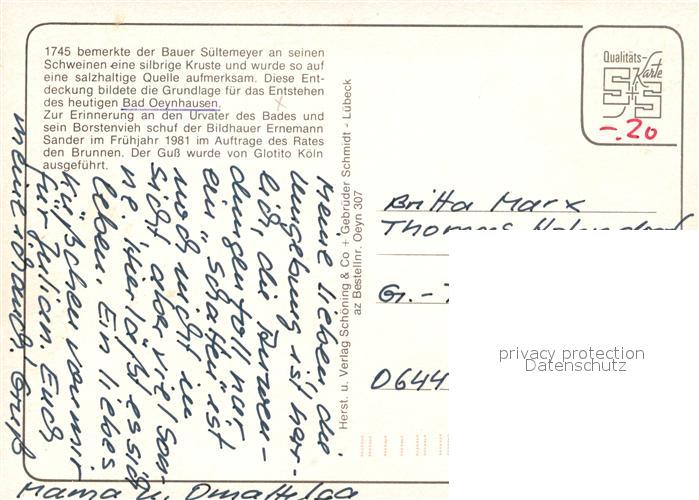 1745 bemerkte der Bauer Sültemeyer an seinen
Schweinen eine silbrige Kruste und wurde so auf
eine salzhaltige Quelle aufmerksam. Diese Ent-
deckung bildete die Grundlage für das Entstehen
des heutigen Bad Oeynhausen.
Zur Erinnerung an den Urvater des Bades und
sein Borstenvieh schuf der Bildhauer Ernemann
Sander im Frühjahr 1981 im Auftrage des Rates
den Brunnen. Der Guß wurde von Glotito Köln
ausgeführt.
Meine Lieben, die
Umgebung ist herr-
lich, die Anwen-
dungen toll nur
ein "Schatten" ist
noch nicht in
Sicht aber viel Son-
ne. Hier läßt es sich
leben. Ein liebes
Küßchen von mir
für Julian Euch
meine ich auch. Gruß
Mama u. Oma Helga
Herst. u. Verlag Schöning & Co + Gebrüder Schmidt - Lübeck
az Bestellnr. Oeyn 307
Qualitäts-
Karte
S+S
-.20
Britta Marx
Thomas
G.-
0644
privacy protection
Datenschutz